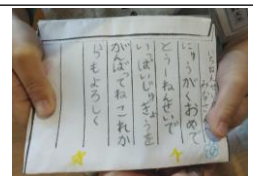 にゅうがくおめで
とうーねんせいで
いっぱいじゅぎょうを
がんばってねこれか
らもよろしく